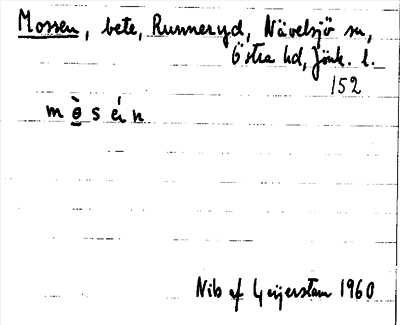 Mossen, bete, Runneryd, Nävelsjö sn,
Östra hd, Jönk. l.
152
m ò̲ s éi n
Nils af Geijerstam 1960